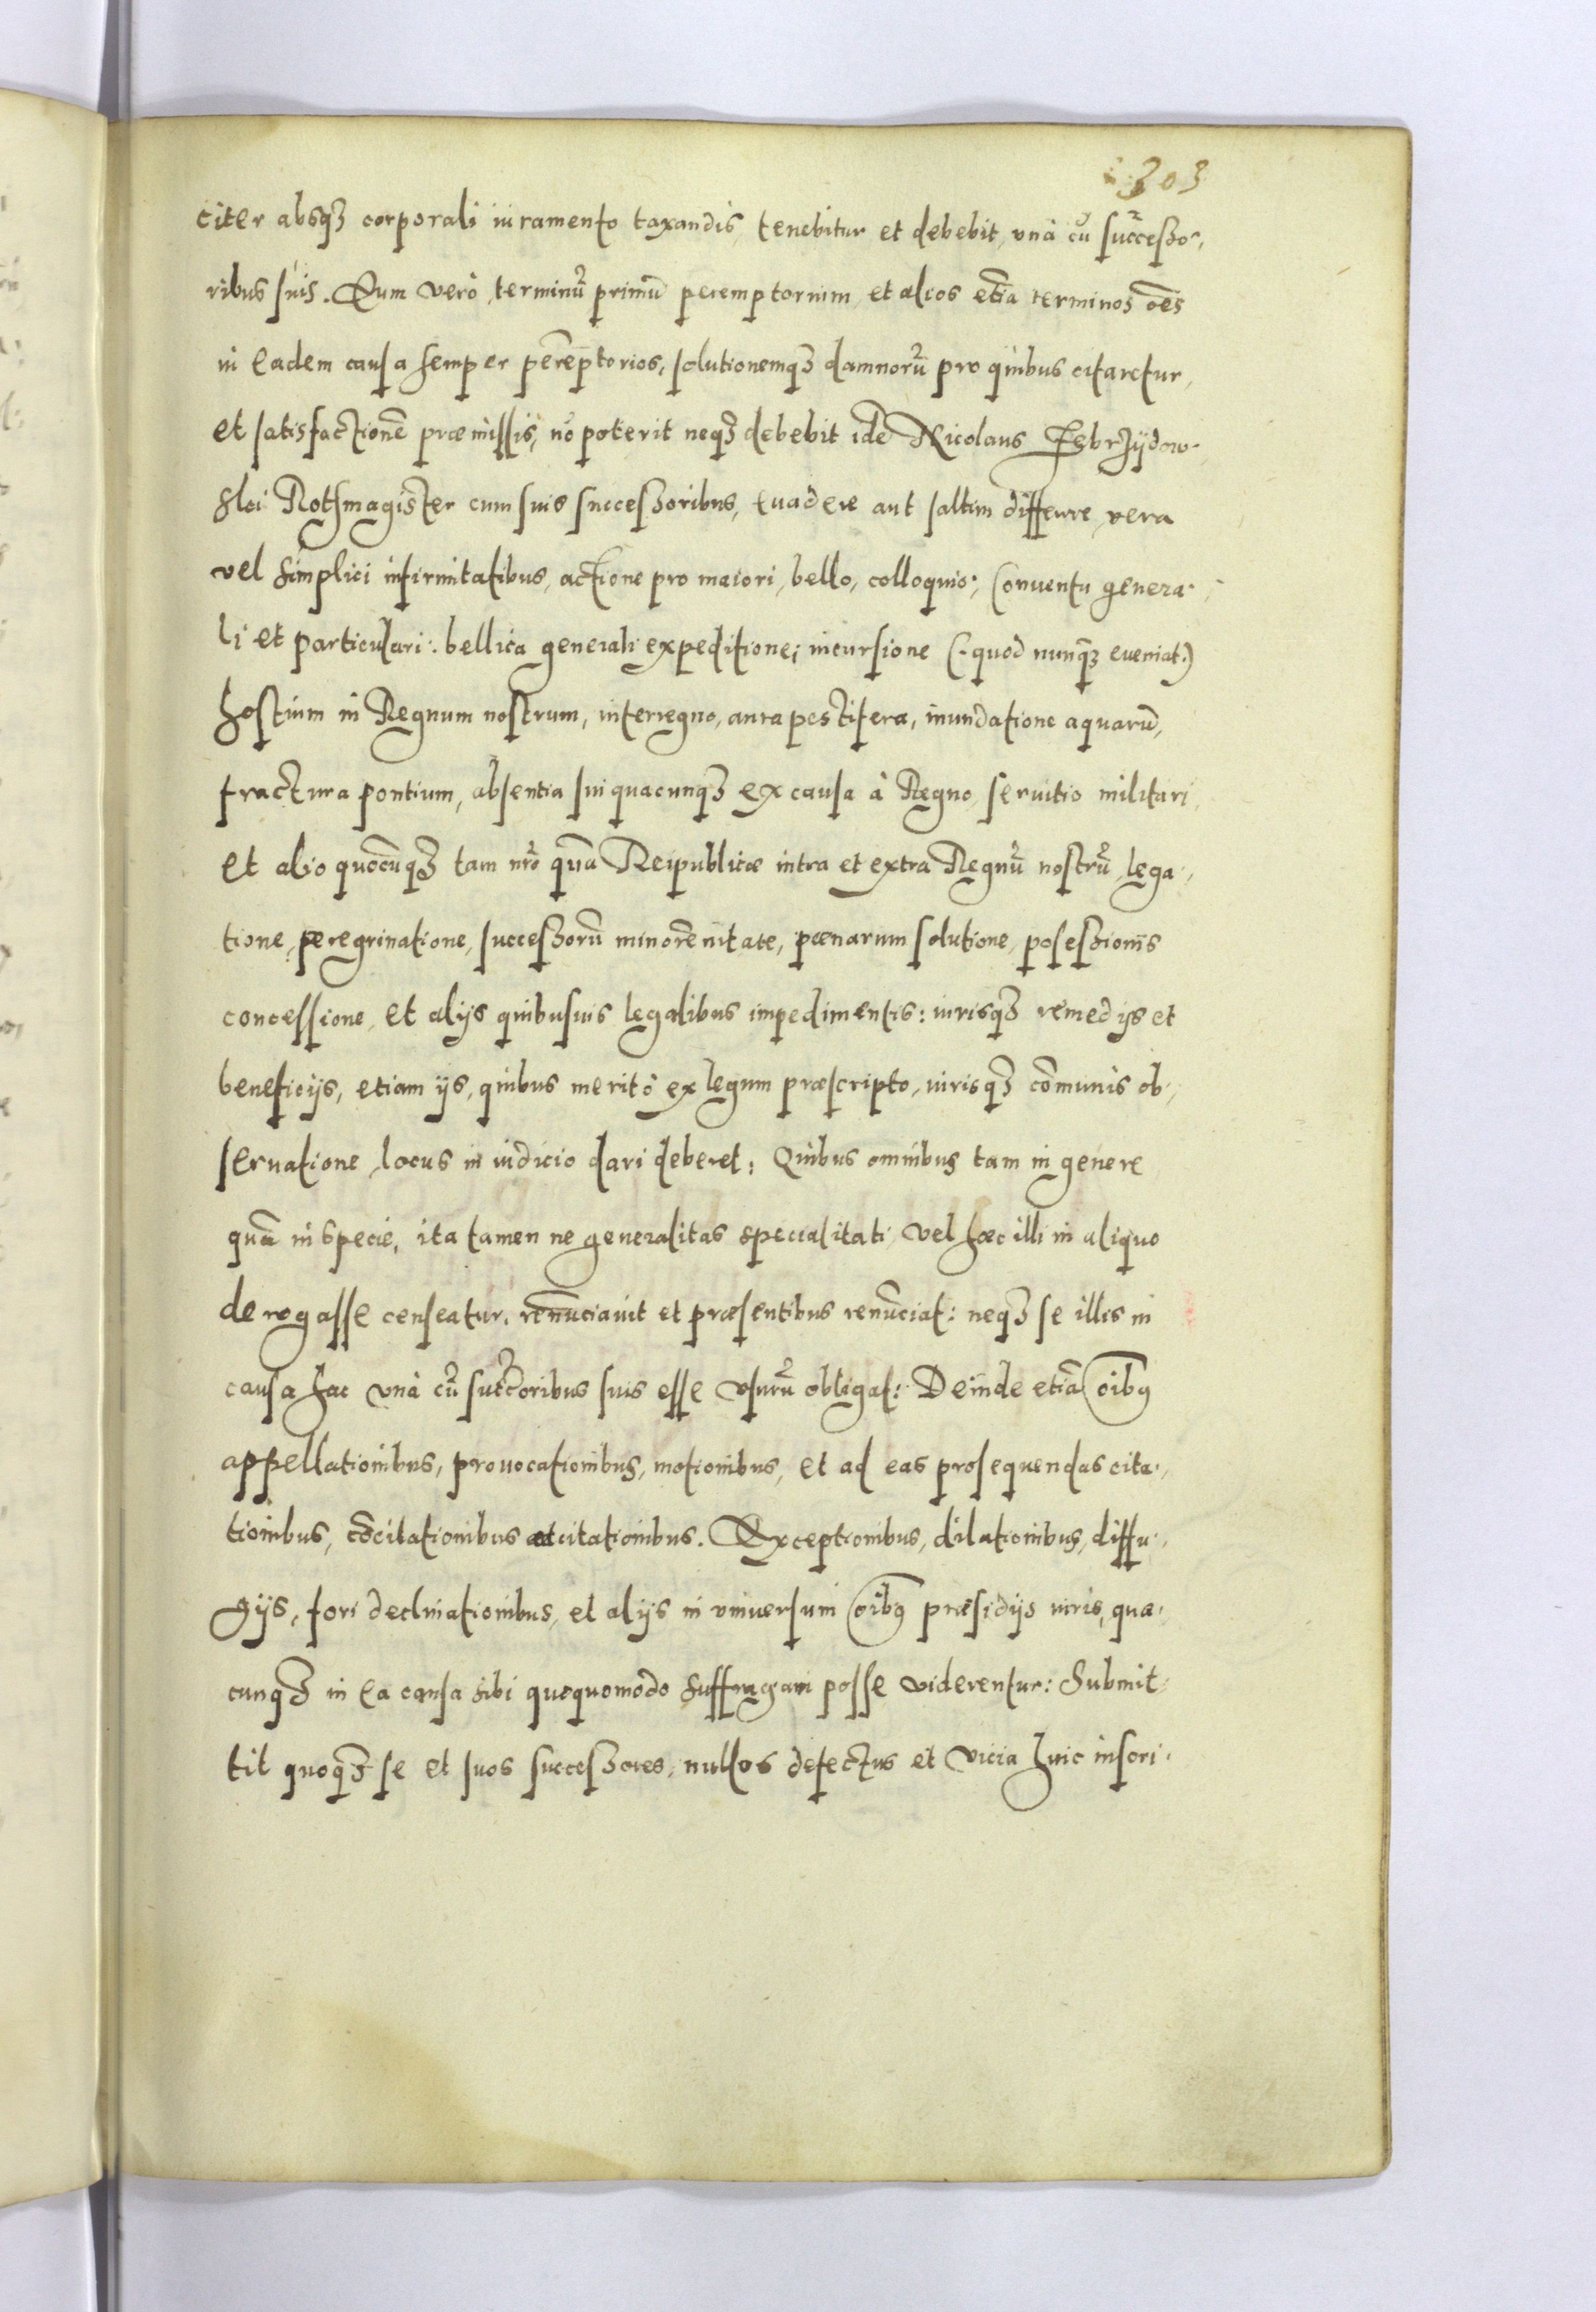 303
citer absq₃ corporali iuramento taxandis, tenebitur et debebit, vnà cū succeszo-,
ribus suis. Qum verò, terminū primū peremptorium, et alios etiā terminos oēs
in eadem causa semper perēptorios, solutionemq₃ damnorū pro quibus citaretur,
et satisfactionē præmissis, nō poterit neq₃ debebit idē Nicolaus Zebrzÿdow-,
slci Rothmagister cum suis succeszoribus, euadere aut saltim differre, vera
vel simplici infirmitatibus, actione pro maiori, bello, colloquio, Conuentu genera-,
li et particulari: bellica generali expeditione; incursione (:quod nunq₃ eueniat:)
hostium in Regnum nostrum, interregno, aura pestifera, inundatione aquarū,
fractura pontium, absentia sui quacunq₃ ex causa à Regno, seruitio militari,
et alio quocūq₃ tam nrō quā Reipublicæ intra et extra Regnū nostrū, lega-,
tione, peregrinatione, succeszorū minorēnitate, pœnarum solutione, poseszionis
concessione, et alijs quibusuis legalibus impedimentis: iurisq₃ remedijs et
beneficijs, etiam ijs, quibus meritò ex legum præscripto, iurisq₃ cōmunis ob-,
seruatione, locus in iudicio dari deberet: Quibus omnibus tam in genere
quā in specie, ita tamen ne generalitas specialitati, vel hæc illi in aliquo
derogasse censeatur, renūciauit et præsentibus renūciat: neq₃ se illis in
causa hac vnà cū succ̄oribus suis esse vsurū obligat: Deinde etiā oībg
appellationibus, prouocationibus, motionibus, et ad eas prosequendas cita-,
tionibus, cōcitationibus adcitationibus. Exceptionibus, dilationibus, diffu-,
gijs, fori declinationibus, et alijs in vniuersum oībg præsidijs iuris, quæ-
cunq₃ in ea causa sibi quoquomodo suffragari posse viderentur: Submit-
tit quoq₃ se et suos succeszores, nullos defectus et vicia huic inscri-